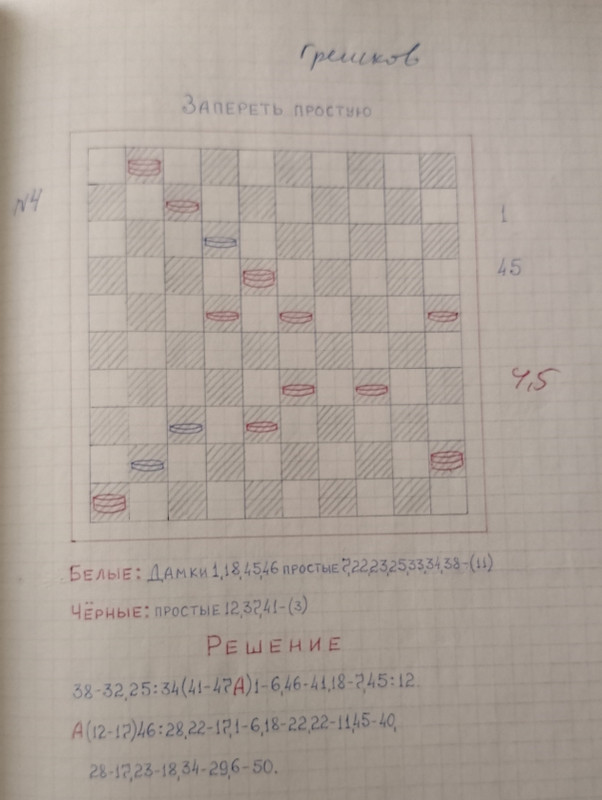 Грешков
Запереть простую
№4
1
45
4,5
Белые: Дамки 1,18,45,46 простые 7,22,23,25,33,34,38-(11)
Чёрные: простые 12,37,41-(3)
Решение
38-32,25:34(41-47А)1-6,46-41,18-7,45:12.
А(12-17)46:28,22-17,1-6,18-22,22-11,45-40,
28-17,23-18,34-29,6-50.